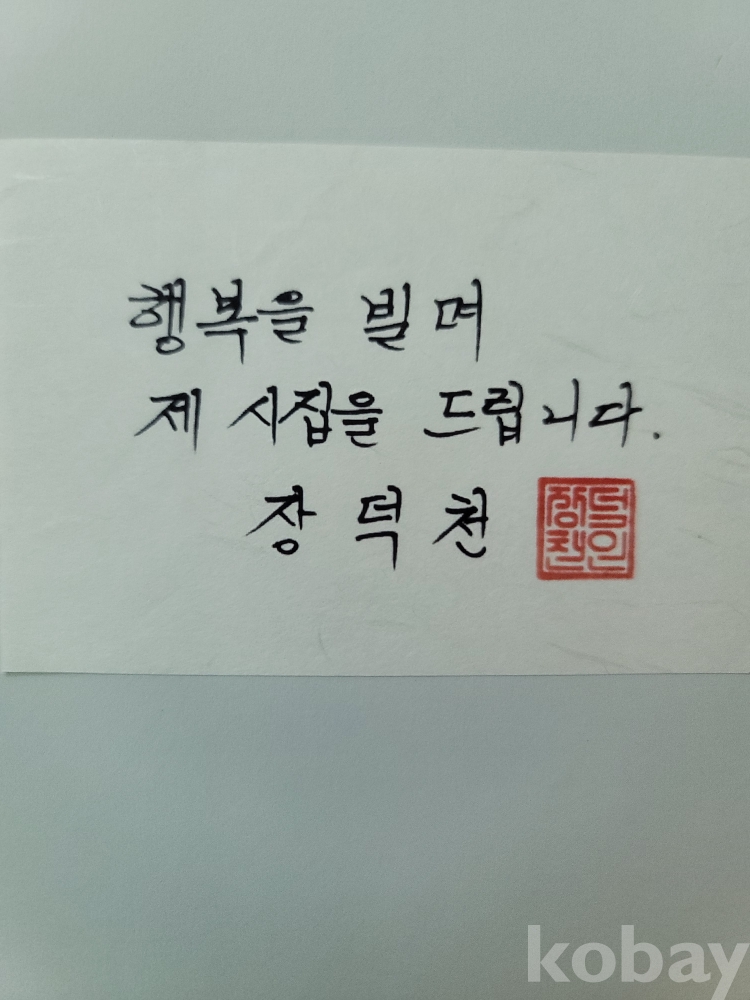 행복을 빌며
제 시집을 드립니다.
장덕천
장덕천인
kobay